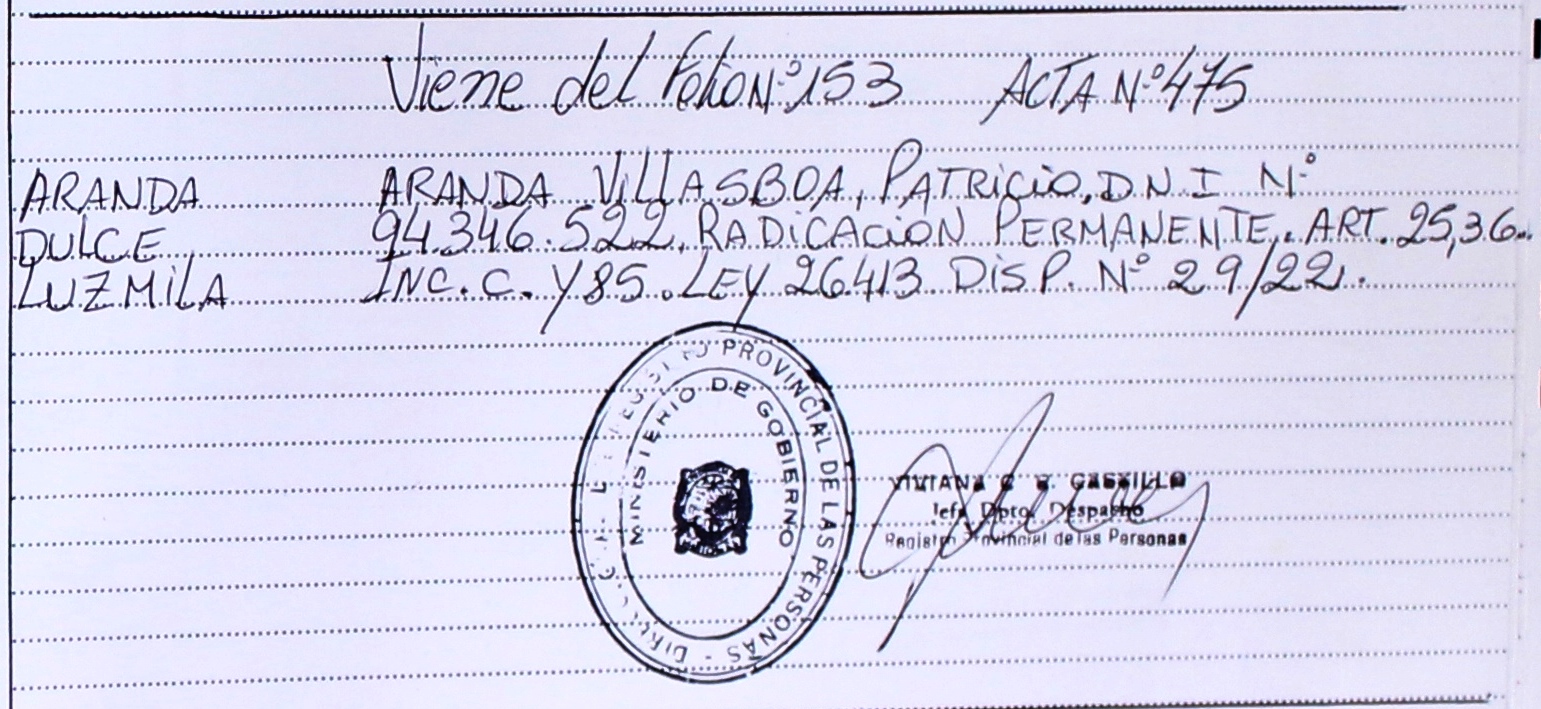 Viene del Folio Nº 153 ACTA Nº 475
ARANDA ARANDA VILLASBOA, PATRICIO, D.N.I Nº
DULCE 94.346.522, RADICACION PERMANENTE. ART. 25,36.
LUZMILA INC. C. Y 85. LEY 26413 DISP. Nº 29/22.
REGISTRO PROVINCIAL DE LAS PERSONAS
MINISTERIO DE GOBIERNO
VIVIANA C. CASTILLO
Jefa Dpto. Despacho
Registro Provincial de las Personas